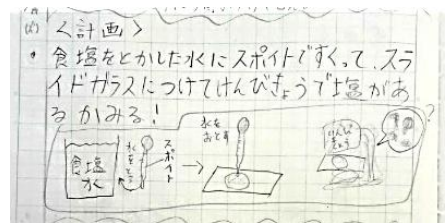 <計画>
・食塩をとかした水にスポイトですくって、スラ
イドガラスにつけてけんびきょうで塩があ
るかみる!
食塩
水
水をとる
スポイト
→
水を
おとす
けんび
きょう
?